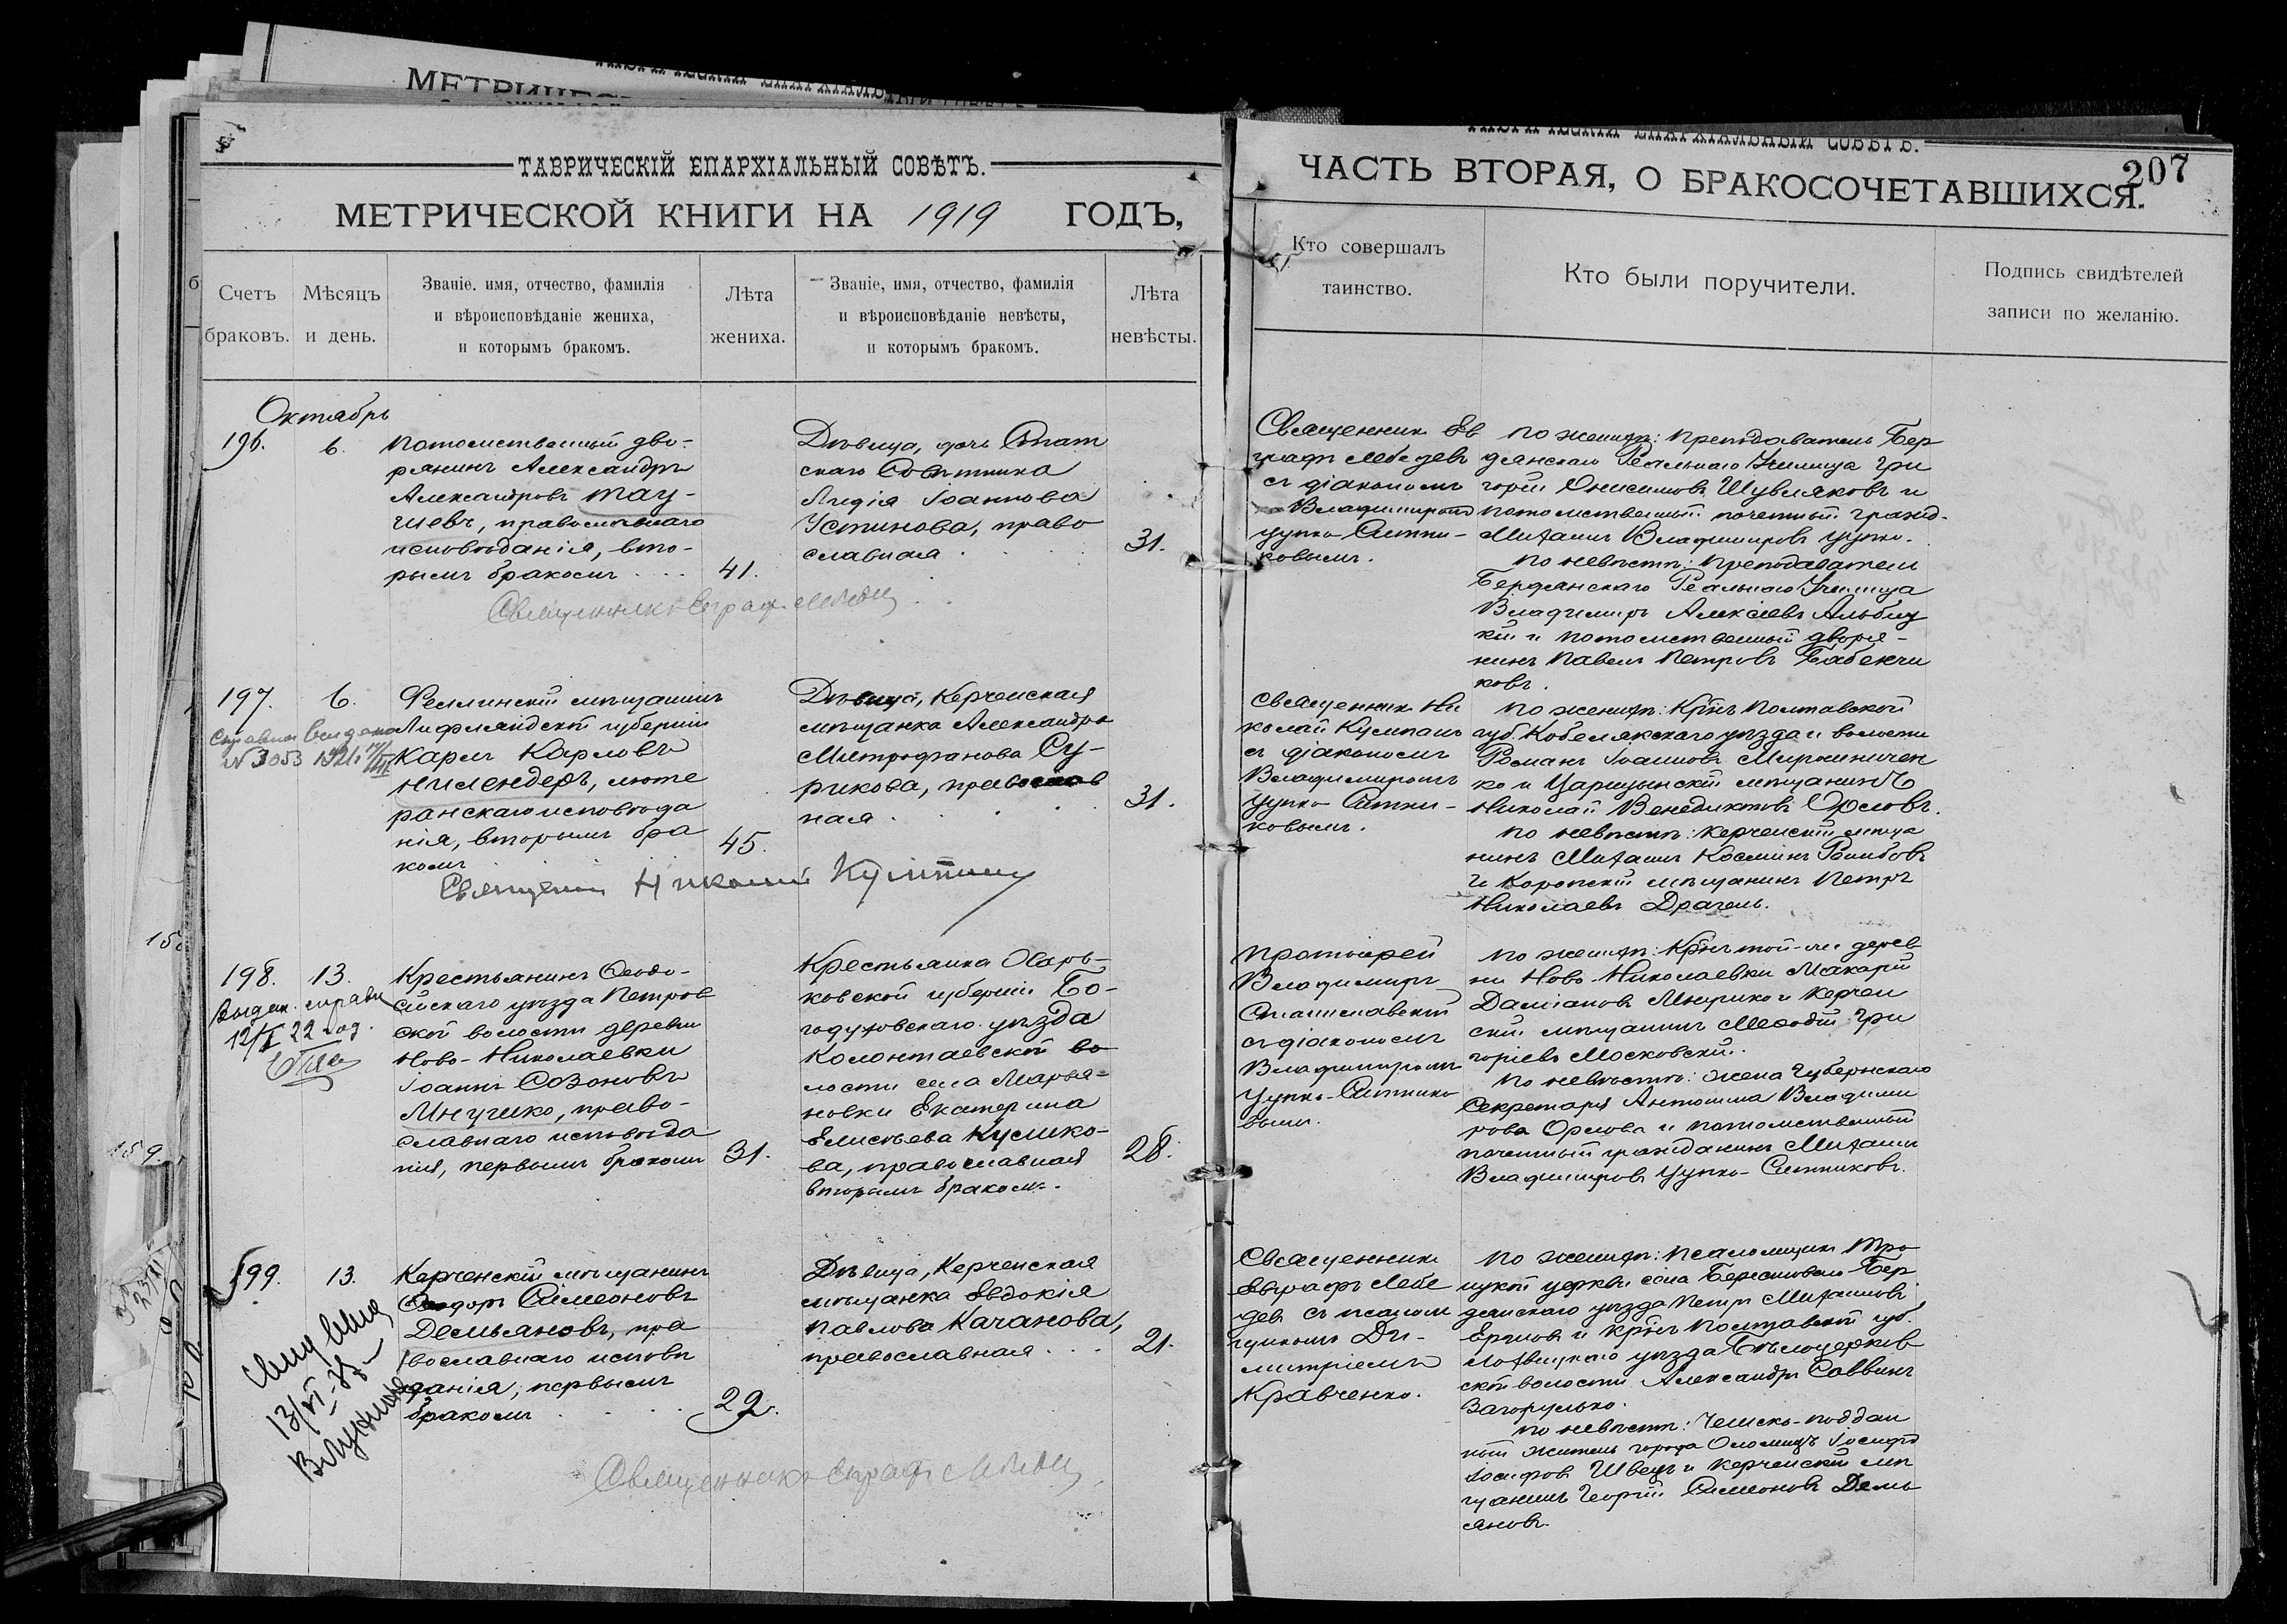 ТАВРИЧЕСКІЙ ЕПАРХІАЛЬНЫЙ СОВѢТЪ.
МЕТРИЧЕСКОЙ КНИГИ НА 1919 ГОДЪ,
Счетъ браковъ.
Мѣсяцъ и день.
Званіе, имя, отчество, фамилія
и вѣроисповѣданіе жениха,
и которымъ бракомъ.
Лѣта жениха.
Званіе, имя, отчество, фамилія
и вѣроисповѣданіе невѣсты,
и которымъ бракомъ.
Лѣта невѣсты.
ЧАСТЬ ВТОРАЯ, О БРАКОСОЧЕТАВШИХСЯ.
207
Кто совершалъ
таинство.
Кто были поручители.
Подпись свидѣтелей
записи по желанію.
Октябрь
196.
6.
Потомственный дво-
рянинъ Александръ
Александровъ Тау-
шевъ, православнаго
исповѣданія, вто-
рымъ бракомъ
41.
Дѣвица, дочь Стат
скаго Совѣтника
Лидія Іоаннова
Устинова, право
славная
31.
Священникъ Ев
графъ Лебедевъ
съ діакономъ
Владиміромъ
Цупко-Ситни-
ковымъ.
По женихѣ: Преподаватель Бер
дянскаго Реальнаго Училища Гри
горій Онисимовъ Шувляковъ и
потомственный почетный гражд.
Михаилъ Владиміровъ Цупко.
По невѣстѣ: Преподаватели
Бердянскаго Реальнаго Училища
Владиміръ Алексѣевъ Альбиц
кій и потомственный дворя-
нинъ Павелъ Петровъ Бабенчи
ковъ.
197.
6.
Справка выдана
N 3053 1921
Феллинскій мѣщанинъ
Лифляндской губерніи
Карлъ Карловъ
Нилендеръ, люте
ранскаго исповѣда
нія, вторымъ бра
комъ
45.
Дѣвица, Керченская
мѣщанка Александра
Митрофанова Су-
рикова, православ
ная
31.
Священникъ Николай
Священникъ Ни
колай Кумпанъ
съ діакономъ
Владиміромъ
Цупко-Ситни-
ковымъ.
По женихѣ: Кр-нъ Полтавской
губ. Кобелякскаго уѣзда и волости
Романъ Іоанновъ Мирошничен
ко и Царицынскій мѣщанинъ
Николай Венедиктовъ Орловъ.
По невѣстѣ: Керченскій мѣща
нинъ Михаилъ Косминъ
и Коропскій мѣщанинъ Петръ
Николаевъ Драгель.
198.
13.
Выдан. справк
12/I 22 год.
Крестьянинъ Ѳеодо-
сійскаго уѣзда Петров
ской волости деревни
Ново-Николаевки
Іоаннъ Созоновъ
Мнушко, право-
славнаго исповѣда
нія, первымъ бракомъ
31.
Крестьянка Харь-
ковской губерніи Бо-
годуховскаго уѣзда
Колонтаевской во-
лости села Марья-
новки Екатерина
Елисѣева Кулико-
ва, православная
вторымъ бракомъ.
28.
Протоіерей
Владиміръ
Станиславскій
съ діакономъ
Владиміромъ
Цупко-Ситнико
вымъ.
По женихѣ: Кр-нъ той-же дерев
ни Ново-Николаевки Макарій
Даміановъ и Керчен
скій мѣщанинъ Меѳодій Гри
горіевъ Московскій.
По невѣстѣ: Жена Губернскаго
Секретаря Антонина Владими
рова Орлова и потомственный
почетный гражданинъ Михаилъ
Владиміровъ Цупко-Ситниковъ.
199.
13.
Керченскій мѣщанинъ
Ѳеодоръ Симеоновъ
Демьяновъ, пра
вославнаго исповѣ
данія, первымъ
бракомъ
22.
Дѣвица, Керченская
мѣщанка Евдокія
Павлова Качанова,
православная
21.
Священникъ
Евграфъ Лебе
девъ съ псалом
щикомъ Ди-
митріемъ
Кравченко.
По женихѣ: Псаломщикъ Тро
ицкой церкви села Берестоваго Бер
дянскаго уѣзда Петръ Михаиловъ
и кр-нъ Полтавской губ.
Лохвицкаго уѣзда Бѣлоцерков
ской волости Александръ Саввинъ
Загорулько.
По невѣстѣ: Чешско-поддан
ный житель города Оломицъ Іосифъ
Іосифовъ Швецъ и Керченскій мѣ
щанинъ Георгій Симеоновъ Демь
яновъ.